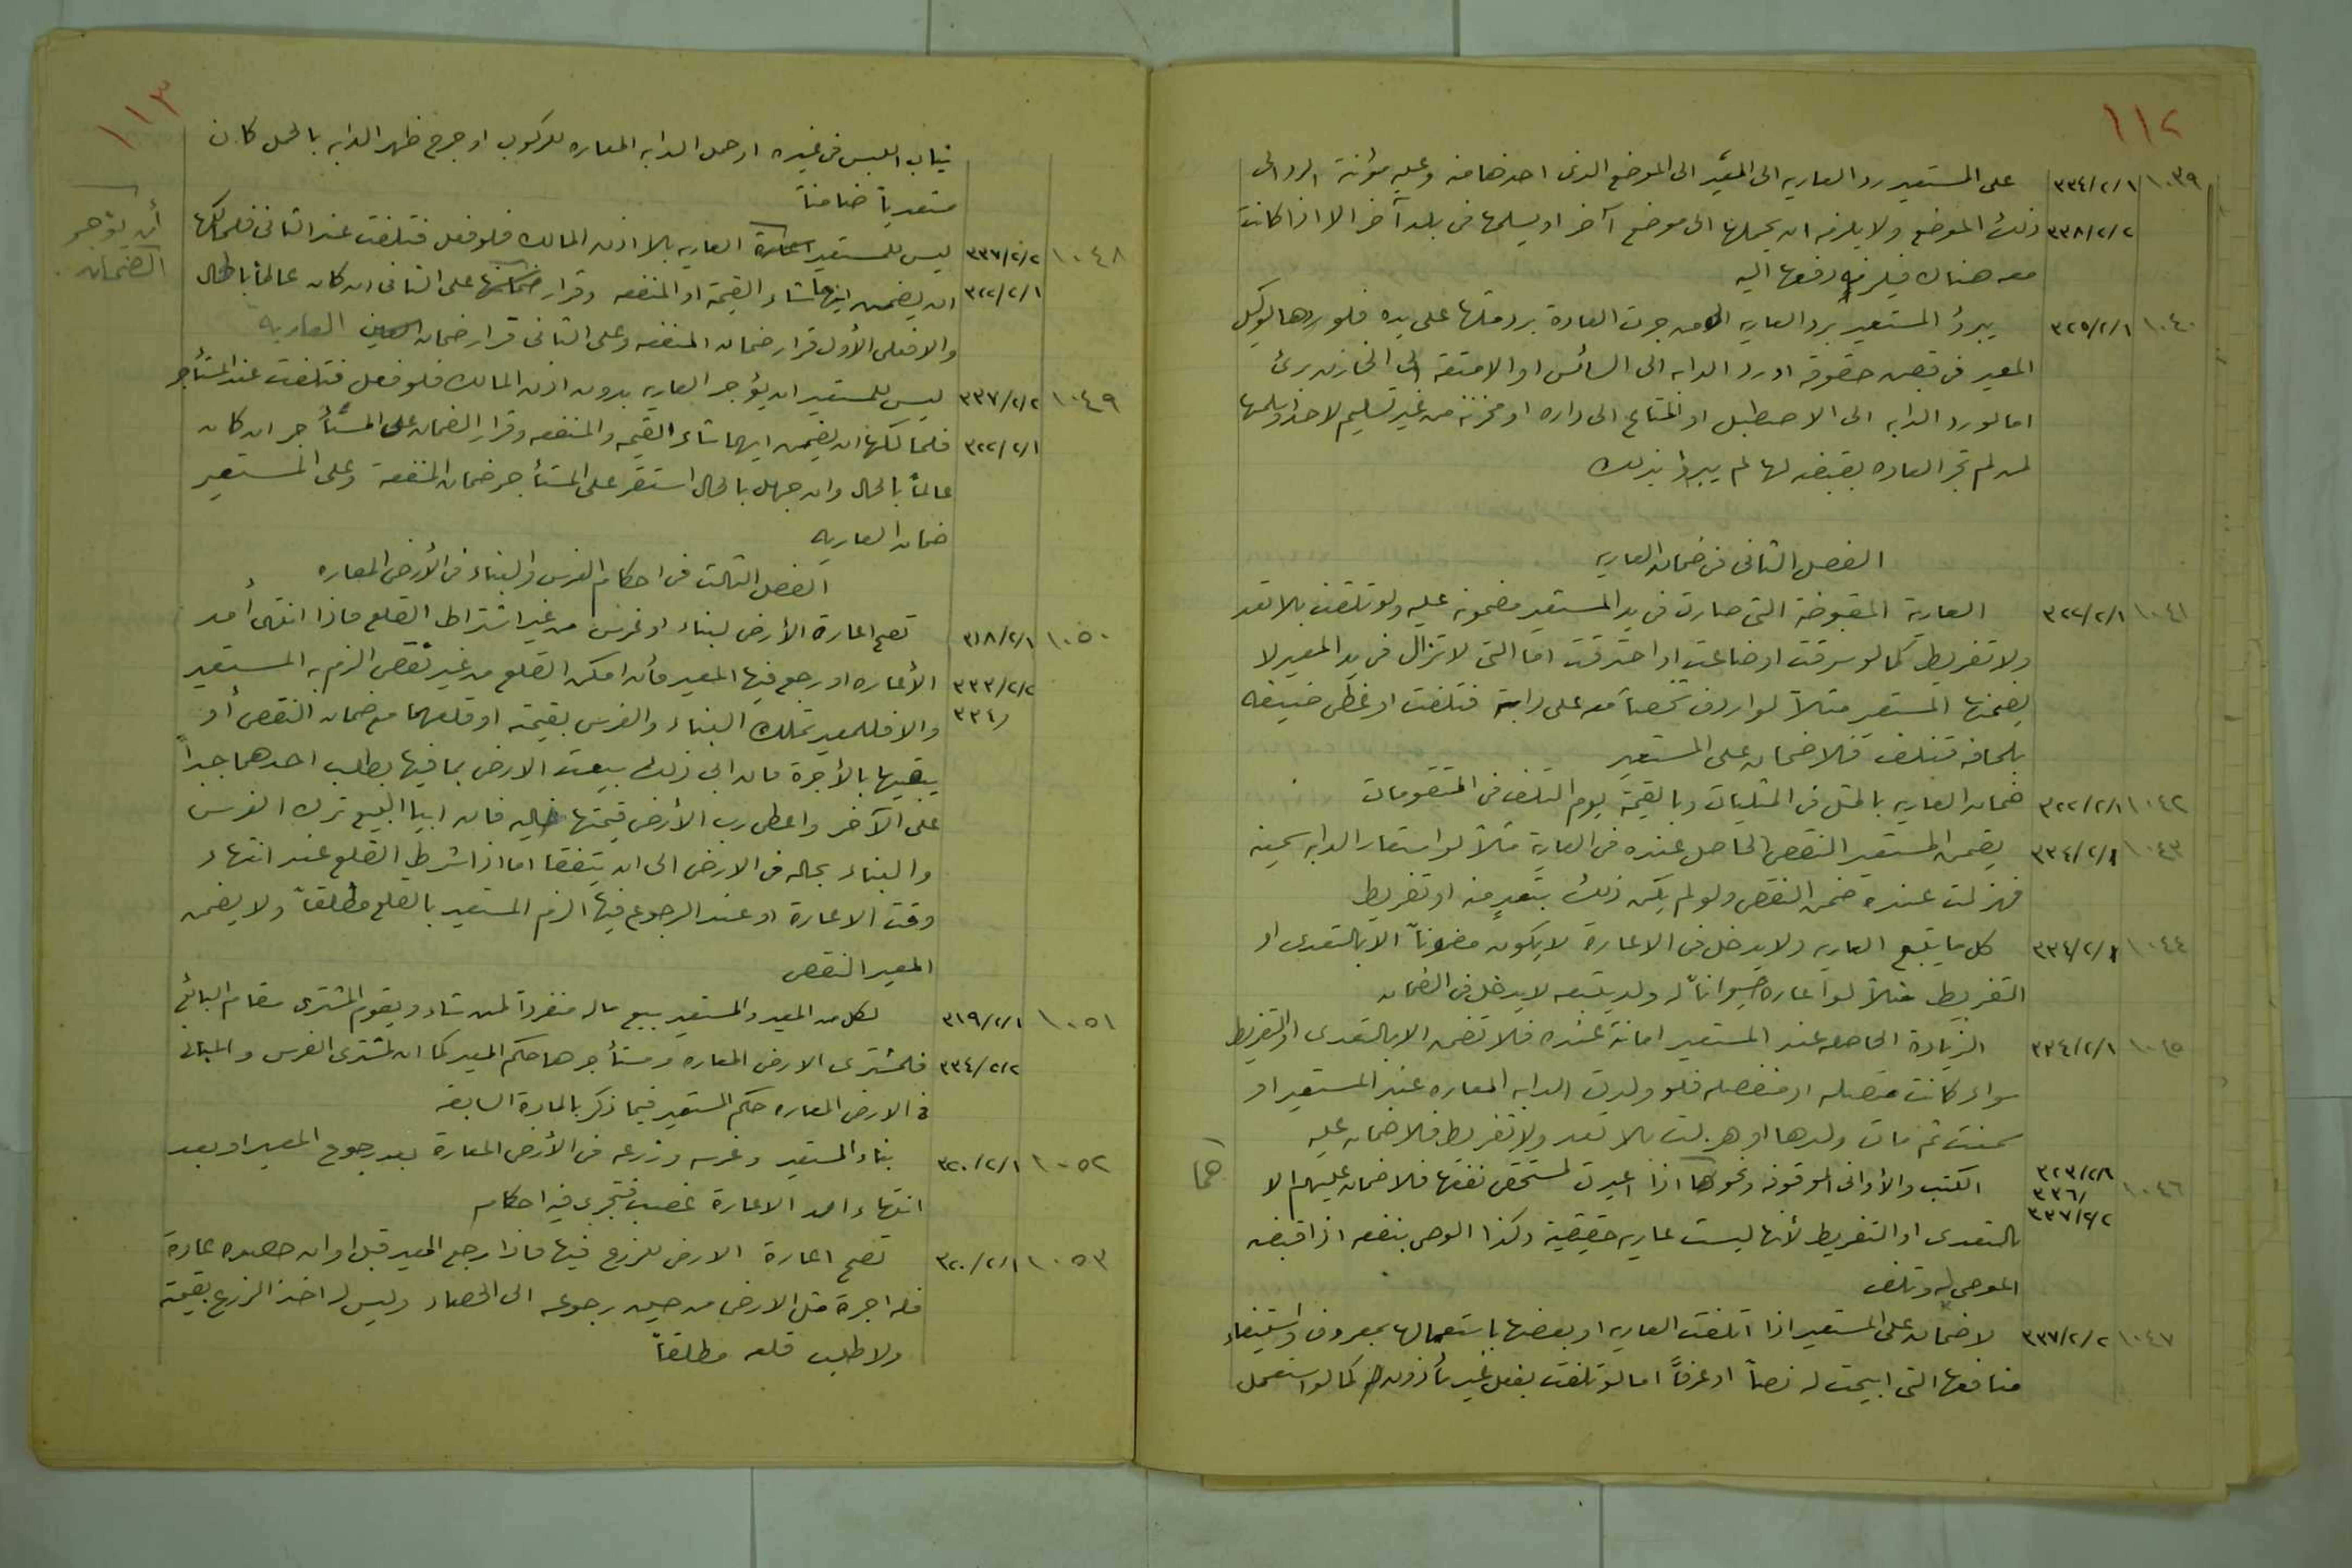 ١١٢
١٠٣٩ ٣٣٤/٢/١ على المستعير رد العاريه الى المعير الى الموضع الذى اخذها منه وعليه مؤنة الرد الى
٣٣٨/٢/٢ ذلك الموضع ولا يلزمه ان يحملها الى موضع آخر او يسلمها فى بلد آخر الا اذا كانت
معه هناك فيلزمه دفعها اليه
١٠٤٠ ٣٢٥/٢/١ يبرؤ المستعير برد العاريه الى من جرت العادة برد مثلها على يده فلو ردها لوكيل
المعير فى قبض حقوقه او رد الدابه الى السائس او الامتعة الى الخازن برئ
اما لو رد الدابه الى الاصطبل او المتاع الى داره او مخزنه من غير تسليم لاحد او سلمها
لمن لم تجر العاده بقبضه لها لم يبرأ بذلك
الفصل الثانى فى ضمان العاريه
١٠٤١ ٣٢٢/٢/١ العارية المقبوضة التى صارت فى يد المستعير مضمونه عليه ولو تلفت بلا تعد
ولا تفريط كما لو سرقت او ضاعت او احترقت اما التى لا تزال فى يد المعير لا
يضمنها المستعير مثلاً لو اردف شخصاً معه على دابة فتلفت او غطى ضيفه
بلحافه فتلف فلا ضمان على المستعير
١٠٤٢ ٣٢٢/٢/١ ضمان العاريه بالمثل فى المثليات وبالقيمة يوم التلف فى المتقومات
١٠٤٣ ٣٣٤/٢/٢ يضمن المستعير النقص الحاصل عنده فى العارية مثلاً لو استعار الدابه سمينه
فهزلت عنده ضمن النقص ولو لم يكن ذلك بتعدٍ منه او تفريط
١٠٤٤ ٣٣٤/٢/٢ كل ما يتبع العاريه ولا يدخل فى الاعارة لا يكون مضموناً الا بالتعدى او
التفريط مثلاً لو اعاره حيواناً له ولد يتبعه لا يدخل فى الضمان
١٠٤٥ ٣٣٤/٢/١ الزيادة الحاصله عند المستعير امانة عنده فلا تضمن الا بالتعدى او التفريط
سواء كانت متصله او منفصله فلو ولدت الدابه المعاره عند المستعير او
سمنت ثم مات ولدها او هزلت بلا تعد ولا تفريط فلا ضمان عليه
١٠٤٦ ٣٢٣/٢/١ الكتب والأوانى الموقوفه ونحوها اذا اعيرت لمستحق نفعها فلا ضمان عليهم الا
٣٣٦/
٣٣٧/٢/٢ بالتعدى او التفريط لأنها ليست عاريه حقيقية وكذا الموصى بنفعه اذا قبضه
الموصى له وتلف
١٠٤٧ ٣٣٧/٢/٢ لا ضمان على المستعير اذا اتلفت العاريه او بعضها باستعمالها بمعروف واستيفاء
منافعها التى ابيحت له نصاً او عرفاً اما لو تلفت بفعل غير مأذون كما لو استعمل
١١٣
ثياب اللبس فى غيره او حمل الدابه المعاره للركوب او جرح ظهر الدابه بالحمل كان
متعدياً ضامناً
١٠٤٨ ٣٣٧/٢/٢ ليس للمستعير اعارة العاريه بلا اذن المالك فلو فعل فتلفت عند الثانى فلمالكها
٣٢٢/٢/١ ان يضمن ايهما شاء القيمة او المنفعه وقرار ضمانها على الثانى ان كان عالماً بالحال
والا فعلى الأول قرار ضمان المنفعه وعلى الثانى قرار ضمان العاريه
أن يؤجر
الضمان
١٠٤٩ ٣٣٧/٢/٢ ليس للمستعير ان يؤجر العاريه بدون اذن المالك فلو فعل فتلفت عند المستأجر
٣٢٢/٢/١ فلمالكها ان يضمن ايهما شاء القيمه والمنفعه وقرار الضمان على المستأجر ان كان
عالماً بالحال وان جهل بالحال استقر على المستأجر ضمان المنفعة وعلى المستعير
ضمان العاريه
الفصل الثالث فى احكام الغرس والبناء فى الأرض المعاره
١٠٥٠ ٣١٨/٢/١ تصح اعارة الأرض لبناء او غرس من غير اشتراط القلع فاذا انتهى أمد
٣٣٣/٢/٢ الأعاره او رجع فيها المعير فأن امكن القلع من غير نقص الزم به المستعير
٣٣٤/ والا فللمعير تملك البناء والغرس بقيمته او قلعهما مع ضمان النقص أو
يبقيها بالأجرة فان ابى ذلك بيعت الارض بما فيها بطلب احدهما جبراً
على الآخر واعطى رب الأرض قيمتها خاليه فان ابيا البيع ترك الغرس
والبناء بحاله فى الارض الى ان يتفقا اما اذا شرط القلع عند انتهاء
وقت الاعارة او عند الرجوع فيها الزم المستعير بالقلع مطلقاً ولا يضمن
المعير النقص
١٠٥١ ٣١٩/٢/١ لكل من المعير والمستعير بيع ماله منفرداً لمن شاء ويقوم المشترى مقام البائع
٣٣٤/٢/٢ فلمشترى الارض المعاره ومستأجرها حكم المعير كما ان لمشترى الغرس والمبانى
فى الارض المعاره حكم المستعير فيما ذكر بالمادة السابقه
١٠٥٢ ٣٢٠/٢/١ بناء المستعير وغرسه وزرعه فى الأرض المعارة بعد رجوع المعير او بعد
انتهاء امد الاعارة غصب فتجرى فيه احكام
١٠٥٣ ٣٢٠/٢/١ تصح اعارة الارض للزرع فيها فاذا رجع المعير قبل اوان حصده عادة
فله اجرة مثل الارض من حين رجوعه الى الحصاد وليس له اخذ الزرع بقيمته
ولا طلب قلعه مطلقاً